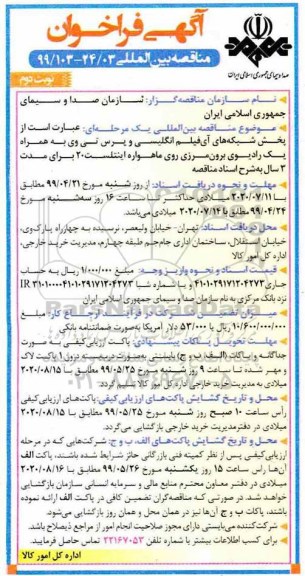 آگهی فراخوان
مناقصه بین‌المللی ۹۹/۱۰۳-۲۴/۰۳
نوبت دوم
صدا و سیمای جمهوری اسلامی ایران
نام سازمان مناقصه‌گزار: سازمان صدا و سیمای
جمهوری اسلامی ایران
موضوع مناقصه بین‌المللی یک مرحله‌ای: عبارت است از
پخش شبکه‌های آی‌فیلم انگلیسی و پرس تی وی به همراه
یک رادیوی برون‌مرزی روی ماهواره اینتلست ۲۰ برای مدت
۳ سال به‌شرح اسناد مناقصه
مهلت و نحوه دریافت اسناد: از روز شنبه مورخ ۹۹/۰۴/۲۱ مطابق
با ۲۰۲۰/۰۷/۱۱ میلادی حداکثر تا ساعت ۱۶ روز سه‌شنبه مورخ
۹۹/۰۴/۲۴ مطابق با ۲۰۲۰/۰۷/۱۴ میلادی می‌باشد.
محل دریافت اسناد: تهران- خیابان ولیعصر، نرسیده به چهارراه پارک‌وی،
خیابان استقلال، ساختمان اداری جام‌جم طبقه چهارم، مدیریت خرید خارجی،
اداره کل امور کالا
قیمت اسناد و نحوه واریز وجه: مبلغ ۱/۰۰۰/۰۰۰ ریال به حساب
جاری ۴۱۰۱۰۲۹۱۷۱۲۰۴۲۷۳ و یا شماره شبا
نزد بانک مرکزی به نام سازمان صدا و سیمای جمهوری اسلامی ایران
میزان تضمین شرکت در فرآیند ارجاع کار: مبلغ
۱۰/۶۰۰/۰۰۰/۰۰۰ ریال یا ۵۳/۰۰۰ دلار آمریکا به‌صورت ضمانتنامه بانکی
مهلت تحویل پاکات پیشنهادی: پاکت ارزیابی کیفی به صورت
جداگانه و پاکات (الف، ب و ج) بایستی به‌صورت دربسته درون ۱ پاکت لاک
و مهر شده تا ساعت ۹ روز شنبه مورخ ۹۹/۰۵/۲۵ مطابق با ۲۰۲۰/۰۸/۱۵
میلادی به مدیریت خرید خارجی اداره کل امور کالا تحویل گردد.
محل و تاریخ گشایش پاکت‌های ارزیابی کیفی: پاکت‌های ارزیابی کیفی
رأس ساعت ۱۰ صبح روز شنبه مورخ ۹۹/۰۵/۲۵ مطابق با ۲۰۲۰/۰۸/۱۵
میلادی در دفتر مدیریت خرید خارجی بازگشایی می‌گردد.
محل و تاریخ گشایش پاکت‌های الف، ب و ج: شرکت‌هایی که در مرحله
ارزیابی کیفی پس از نظر کمیته فنی بازرگانی حائز شرایط شده باشند، پاکت الف
آن‌ها رأس ساعت ۱۵ روز یکشنبه مورخ ۹۹/۰۵/۲۶ مطابق با ۲۰۲۰/۰۸/۱۶
میلادی در دفتر معاون محترم منابع مالی و سرمایه انسانی سازمان بازگشایی
خواهد شد. در صورتی که مناقصه‌گران تضمین کافی در پاکت الف ارائه نموده
باشند، پاکات ب و ج آن‌ها نیز در همان محل و همان روز بازگشایی می‌شود.
شرکت‌کننده می‌بایستی دارای مجوز صلاحیت انجام امور از مراجع ذیصلاح باشد.
برای کسب اطلاعات بیشتر با شماره تلفن ۲۲۱۶۷۰۵۳ تماس حاصل فرمایید.
اداره کل امور کالا